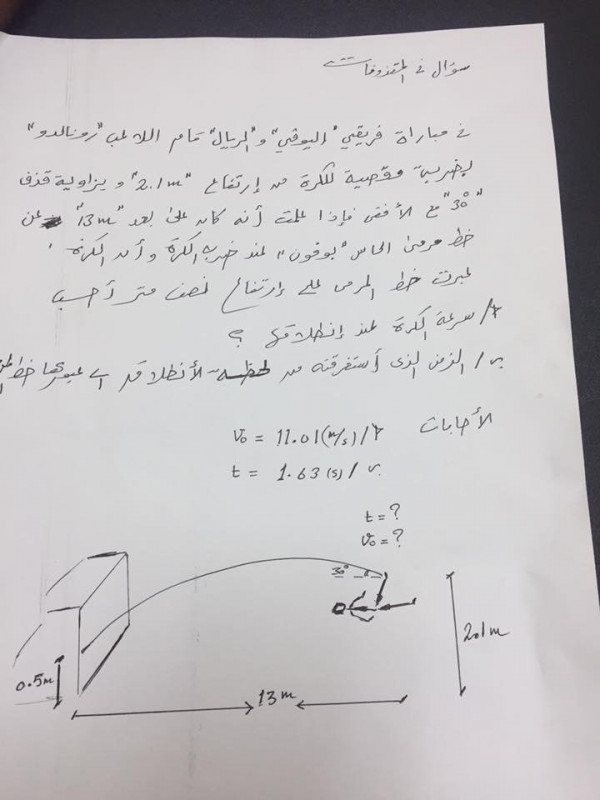 سؤال في المقذوفات
في مباراة فريقي "اليوفي" و"الريال" قام اللاعب "رونالدو"
بضربة مقصية للكرة من إرتفاع "2.1m" وبزاوية قذف
"30°" مع الأفق فإذا علمت أنه كان على بعد "13m" عن
خط مرمى الحارس "بوفون" لمند ضرب الكرة وأن الكرة
عبرت خط المرمى على إرتفاع نصف متر أحسب
أ/ سرعة الكرة عند إنطلاقها ؟
ب/ الزمن الذي أستغرقته من لحظة الأنطلاقة الى عبورها خط
الأجابات
أ/ V₀ = 11.01 (m/s)
ب/ t = 1.63 (s)
t = ?
V₀ = ?
30°
2.1m
0.5m
13m